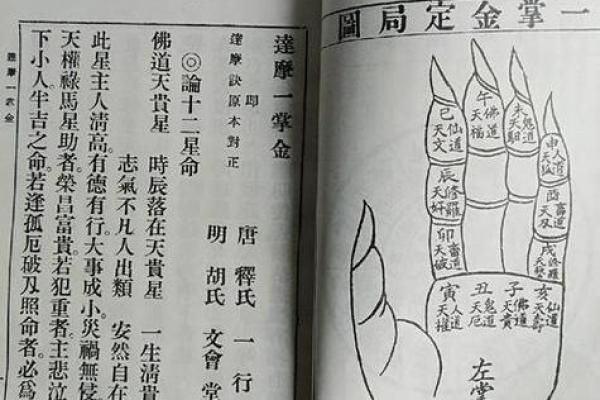 一掌金定局圖
亥仙道天壽
子佛道天貴
丑鬼道天厄
寅人道天權
卯畜道天破
辰修羅天奸
巳仙道天文
午佛道天福
未鬼道天驛
申人道天孤
酉畜道天刃
戌修羅天藝
左掌
達摩一掌金
即達摩訣原本對正
唐 釋氏 一行
明 胡氏 文會堂
◎論十二星命
佛道天貴星 時辰落在天貴星 一生清貴
志氣不凡人出類 安然自在
此星主人清高。有德有行。大事成小。災禍無侵
天權祿馬星助者。榮昌富貴。若犯重者。主悲泣
下小人半吉之命。若逢孤厄破刃照命者。必爲
達摩一掌金